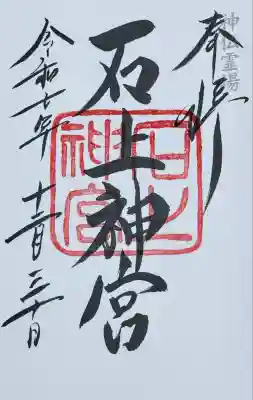 神仏霊場
奉拝
石上神宮
石上神宮
令和七年十二月三十日